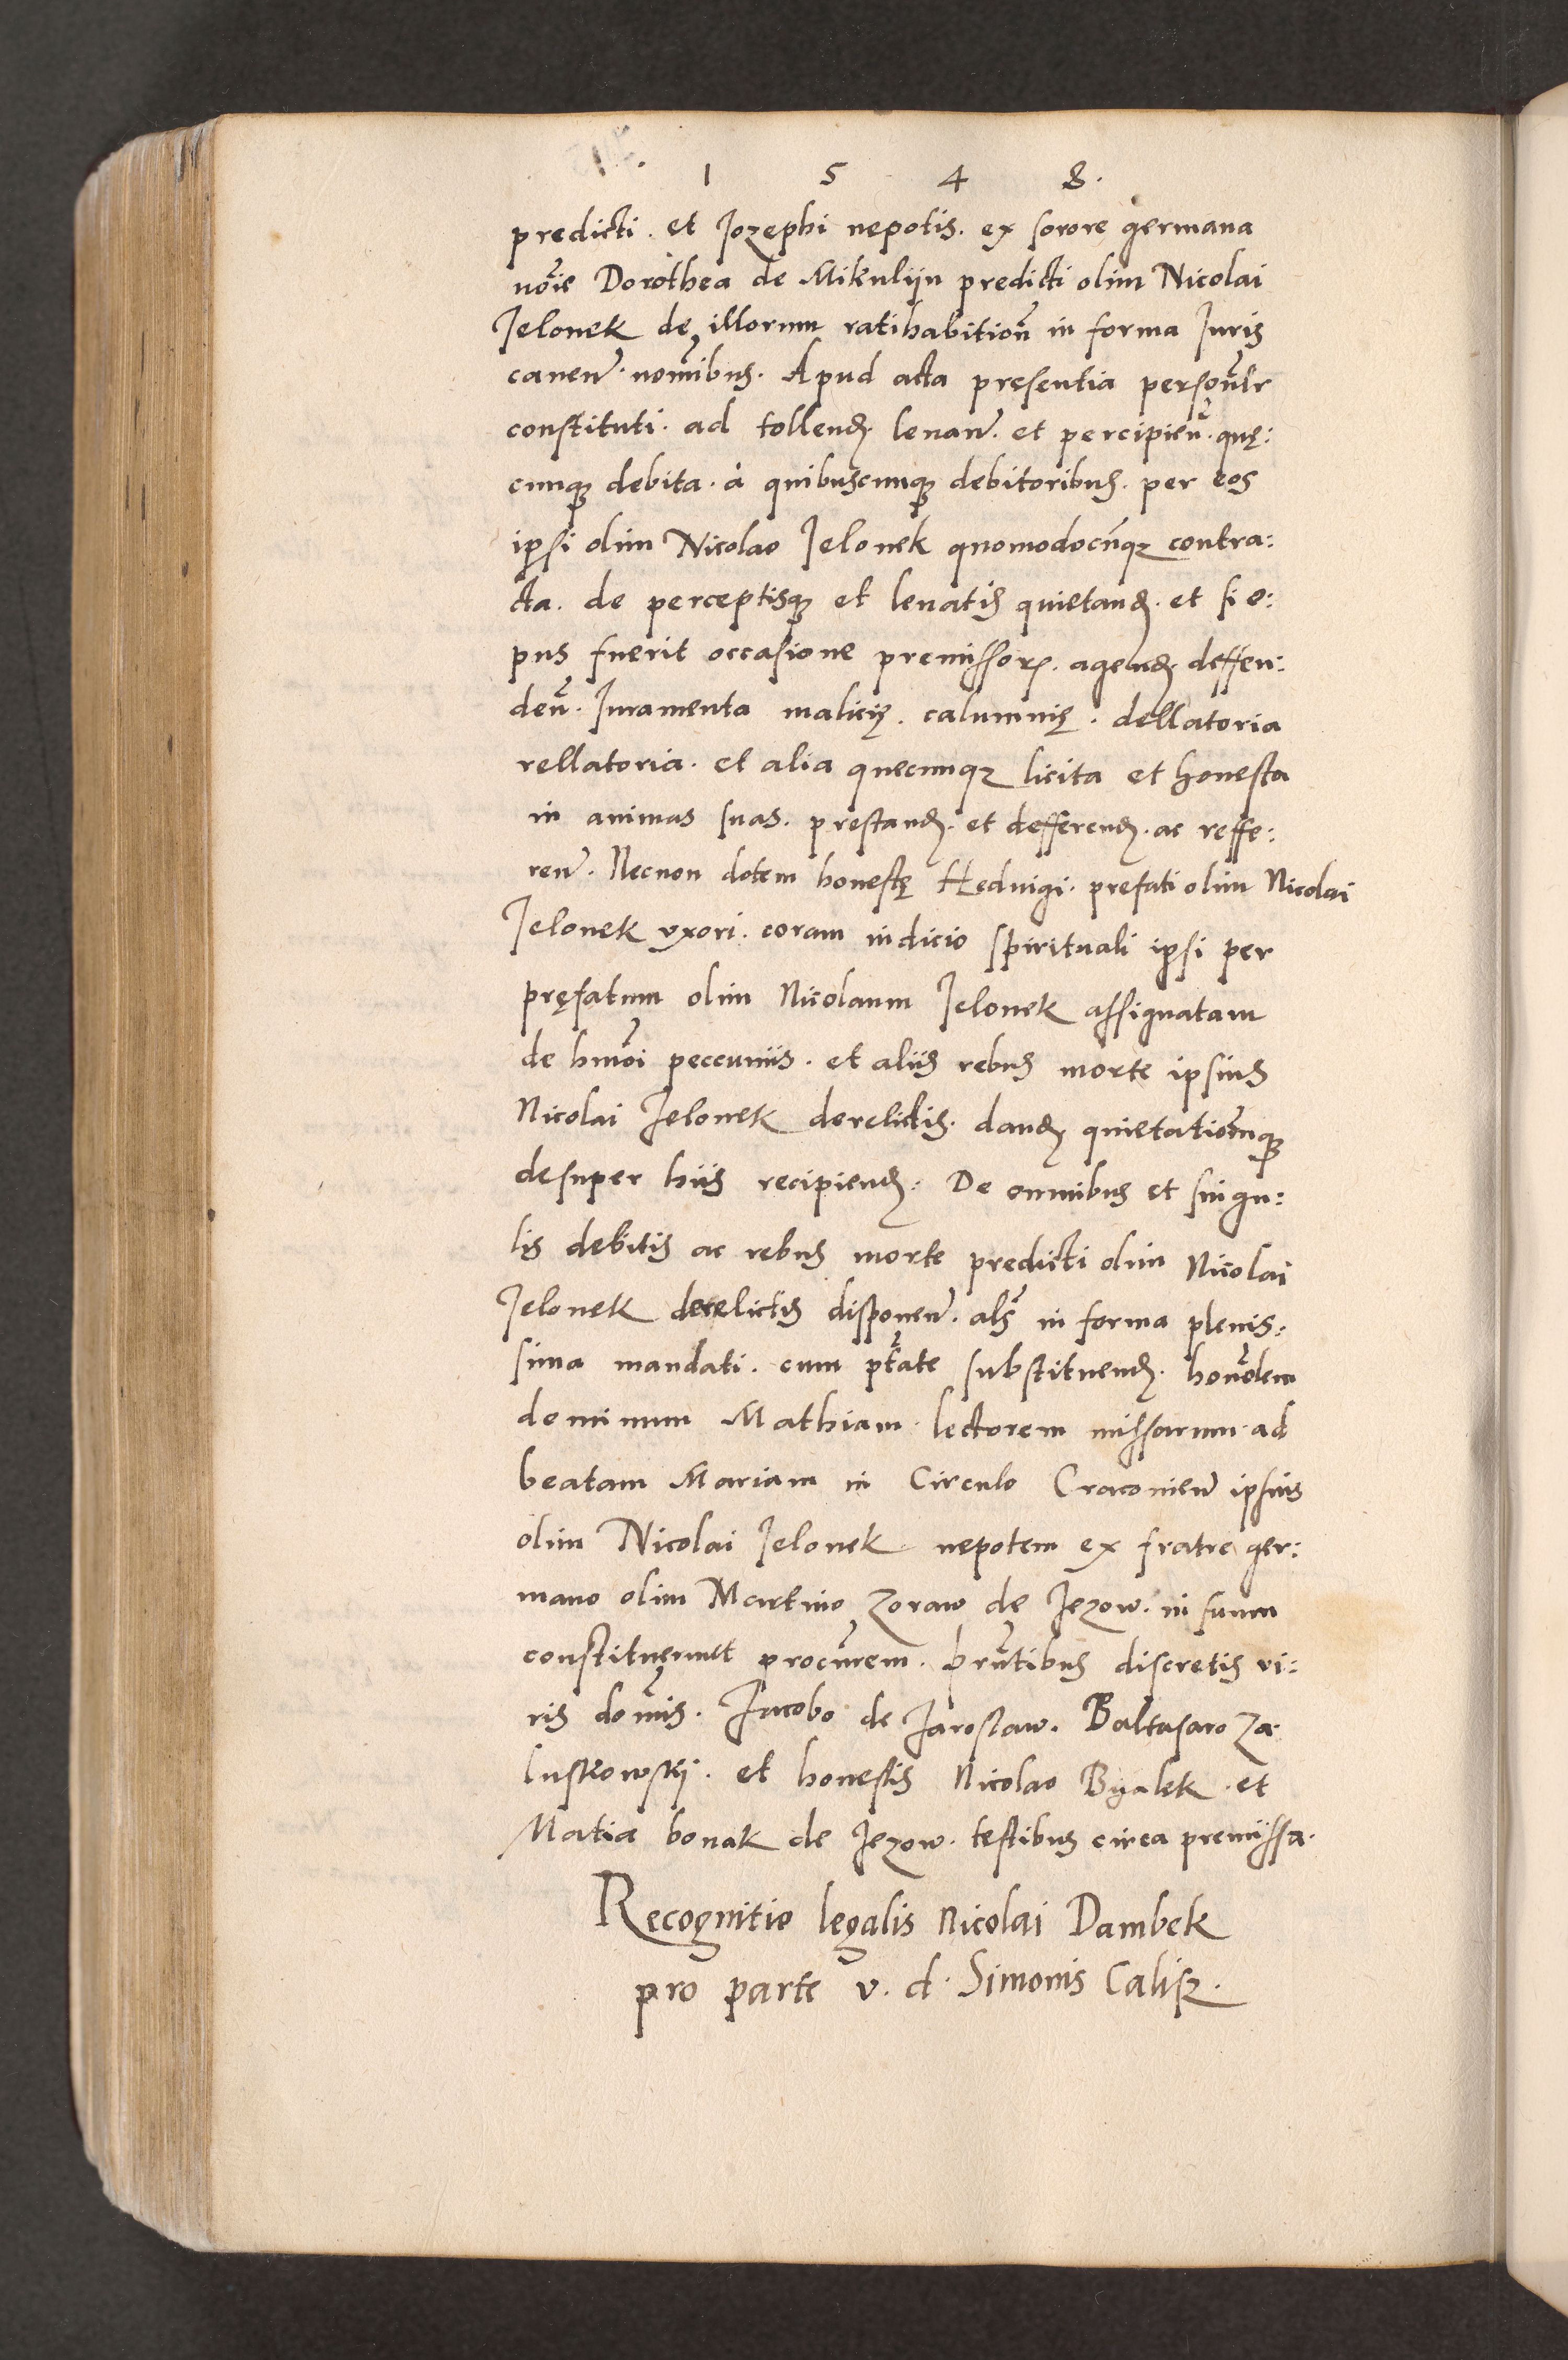 1 5 4 8.
predicti. et Jozephi nepotis. ex sorore germana
no͂ie Dorothea de Mikuliyn predicti olim Nicolai
Jelonek de illorum ratihabition͂ in forma Juris
cauen͂. nom͂ibus. Apud acta presentia person͂lr
constituti. ad tollend. leuan͂. et percipien͂. quę:
cunq debita. à quibuscunq debitoribus. per eos
ipsi olim Nicolao Jelonek quomodocu͂qz contra:
cta. de perceptisq et leuatis quietand. et si o:
pus fuerit occasione premissor. agend deffen:
den͂. Juramenta malicię. calumnię. dellatoria
rellatoria. et alia quecunqz licita et honesta
in animas suas. prestand. et defferend. ac reffe:
ren͂. Necnon dotem honestę Heduigi. prefati olim Nicolai
Jelonek vxori. coram iudicio spirituali ipsi per
pręfatum olim Nicolaum Jelonek assignatam
de hmo͂i peccuniis. et aliis rebus morte ipsius
Nicolai Jelonek derelictis. dand quietation͂mq
desuper hiis recipiend: De omnibus et singu:
lis debitis ac rebus morte predicti olim Nicolai
Jelonek derelictis disponen͂. als͂ in forma plenis:
sima mandati. cum pt͂ate substituend. hon͂olem
dominum Mathiam lectorem missarum. ad
beatam Mariam in Circulo Cracouien͂ ipsius
olim Nicolai Jelonek nepotem ex fratre ger:
mano olim Martino Zoraw de Jezow. in suum
constituerunt procu͂rem. pru͂tibus discretis vi:
ris dom͂is. Jacobo de Jaroslaw. Baltasaro Za
luskowskij. et honestis Nicolao Byalek. et
Matia bonak de Jezow. testibus circa premissa.
Recognitio legalis Nicolai Dambek
pro parte v. d. Simonis Calisz.